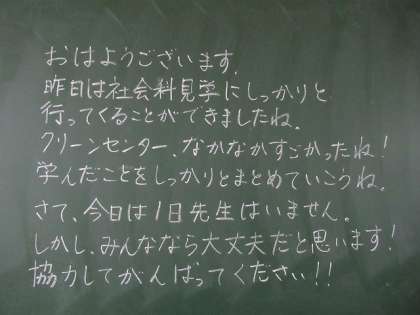 おはようございます.
昨日は社会料見学にしっかりと
行ってくることができましたね。
クリーンセンター、なかなかすごかったね!
学んだことをしっかりとまとめていこうね。
さて、今日は1日先生はいません。
しかし、みんななら大丈夫だと思います!
協力してがんばってください!!